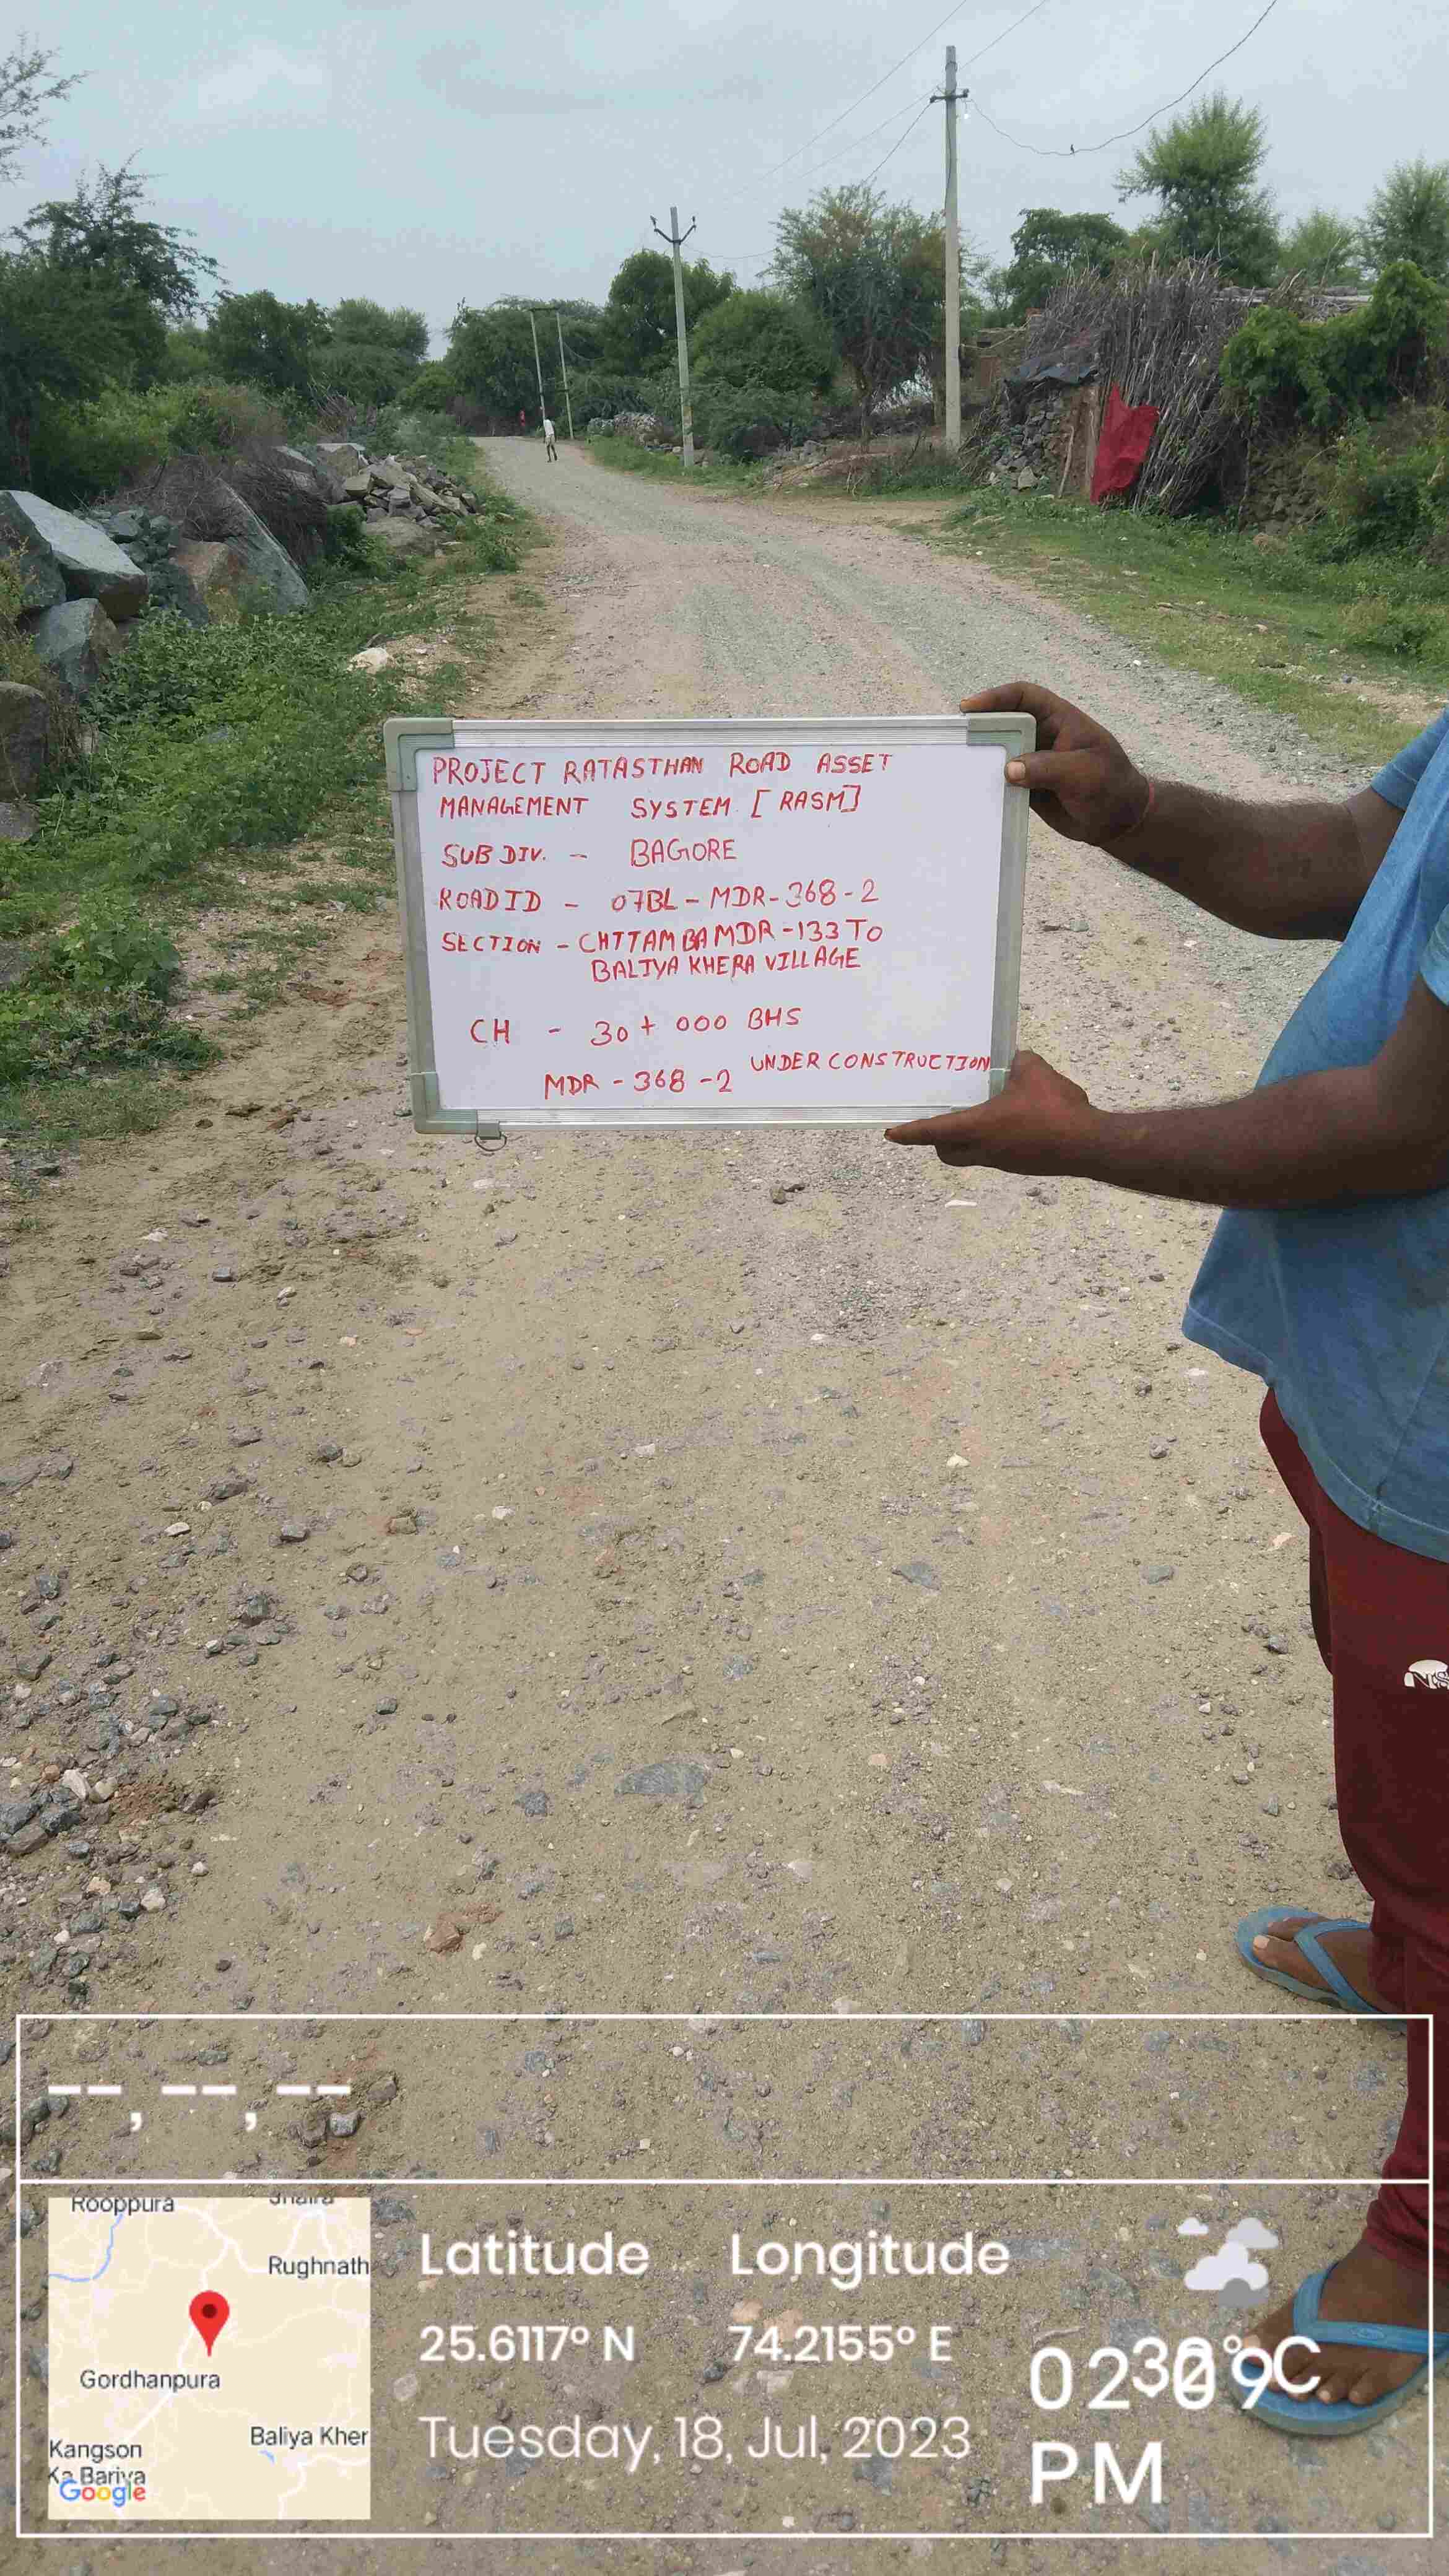 PROJECT RATASTHAN ROAD ASSET
MANAGEMENT SYSTEM [RASM]
SUB DIV. - BAGORE
ROAD ID - 07BL-MDR-368-2
SECTION - CHTTAMBA MDR-133 TO
BALIYA KHERA VILLAGE
CH - 30+000 BHS
UNDER CONSTRUCTION
MDR-368-2
--, --, --
Rooppura
Rughnath
Gordhanpura
Baliya Kher
Kangson
Ka Bariya
Google
Latitude
Longitude
25.6117° N
74.2155° E
Tuesday, 18, Jul, 2023
PM